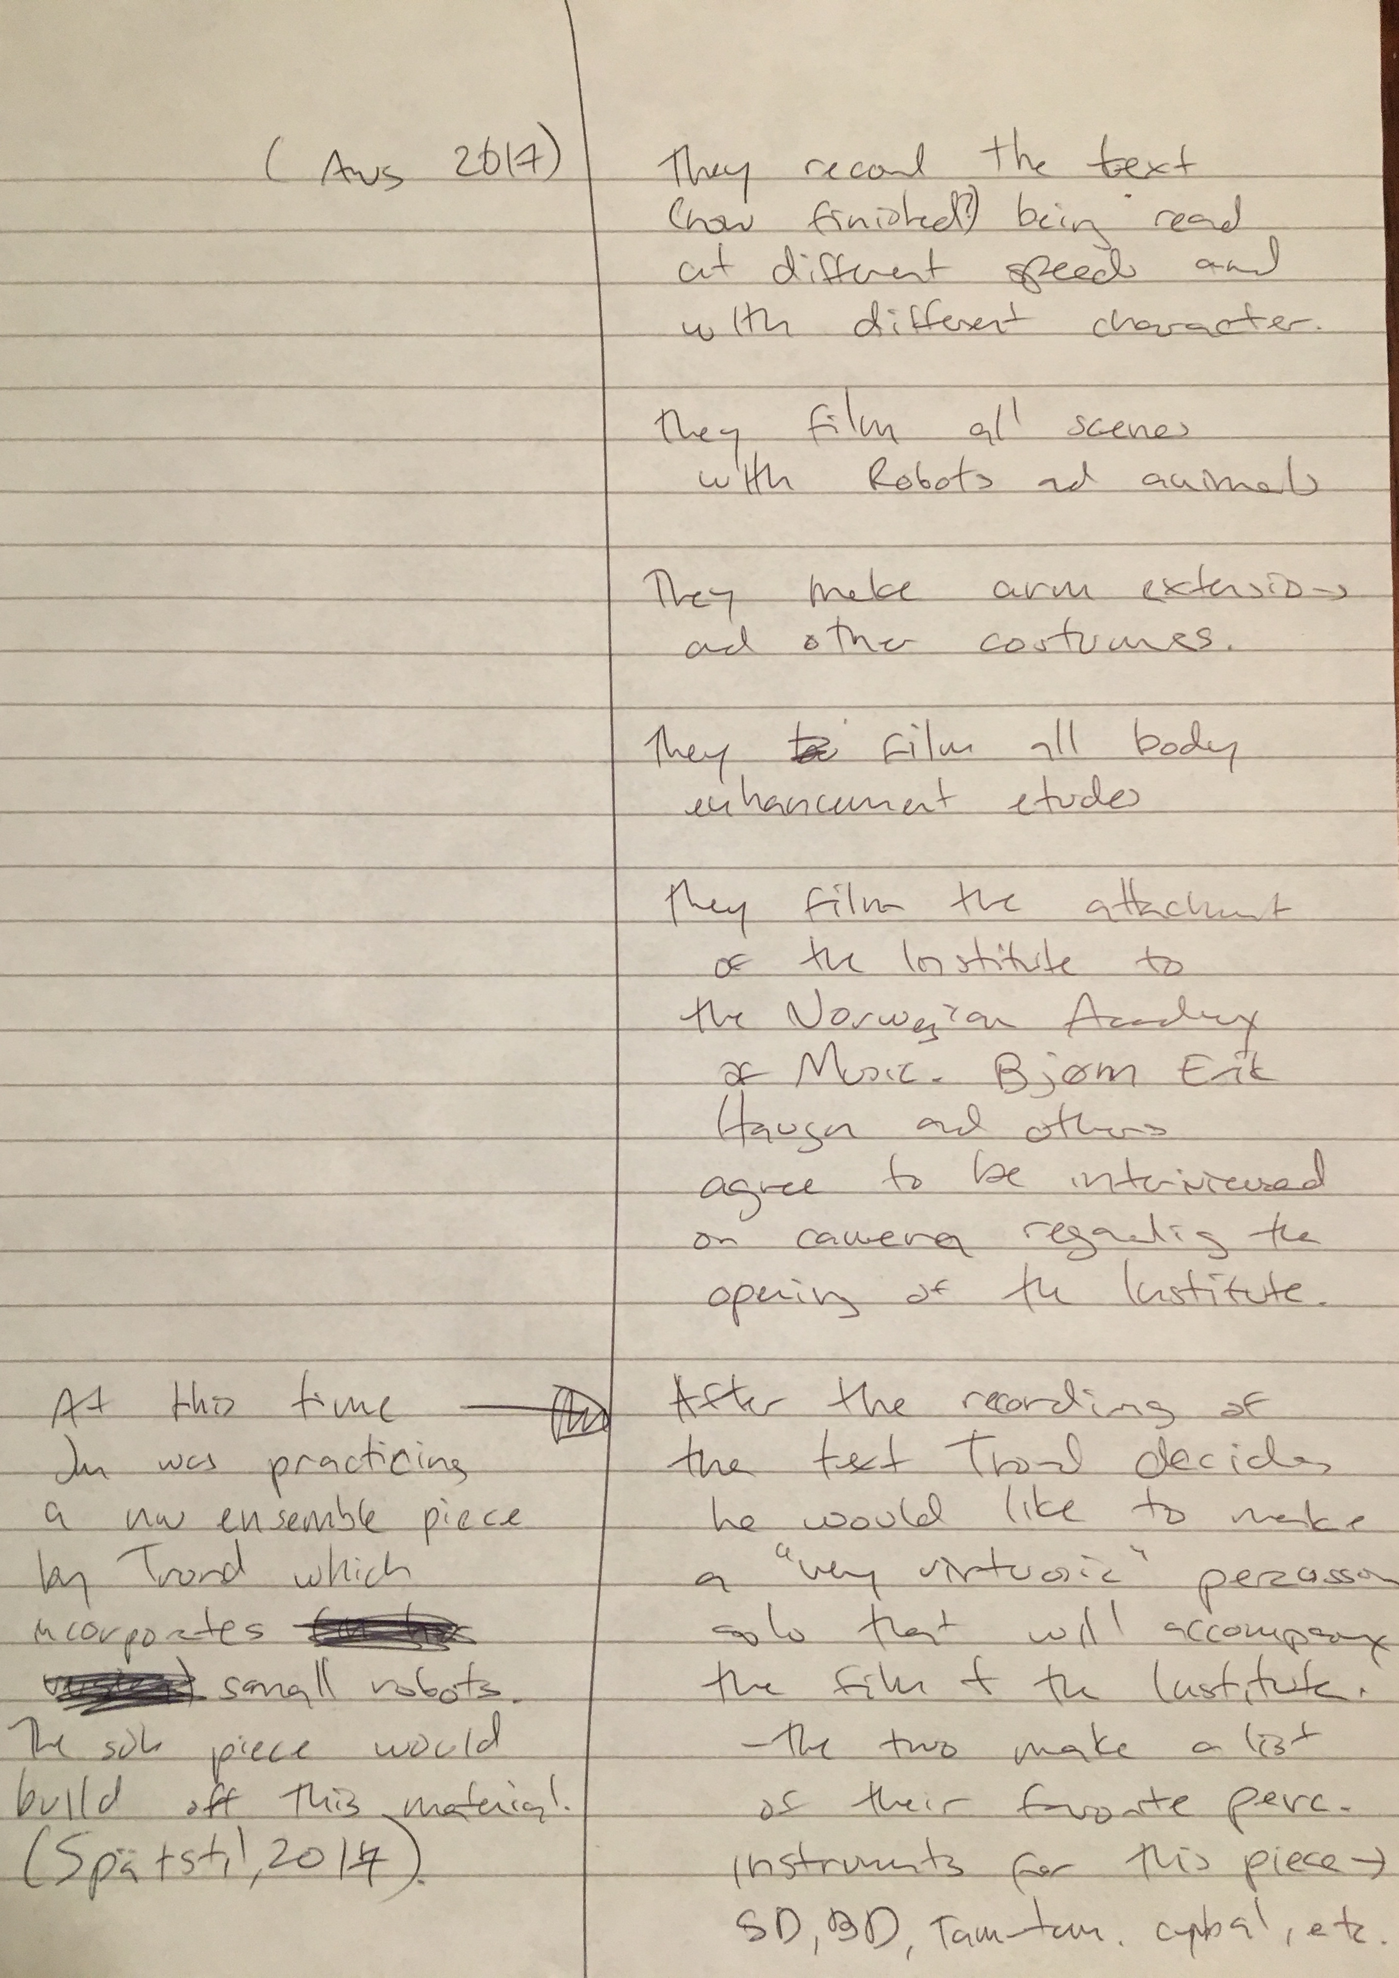 (Aug 2017)
They record the text
(now finished?) being read
at different speeds and
with different character.
They film all scenes
with Robots ad animals
They make arm extensions
ad other costumes.
They film all body
enhancement etudes
They film the attachment
of the Institute to
the Norwegian Academy
of Music. Bjørn Erik
Haugen and others
agree to be interviewed
on camera regarding the
opening of the Institute.
After the recording of
the text Trond decides
he would like to make
a "very virtuosic" percussion
solo that will accompany
the film & the Institute.
- The two make a list
of their favorite perc.
instruments for this piece →
SD, BD, Tam-tam, cymbal, etc.
At this time
was practicing
a new ensemble piece
by Trond which
incorporates
small robots.
The solo piece would
build off this material.
(Spätstil, 2017).